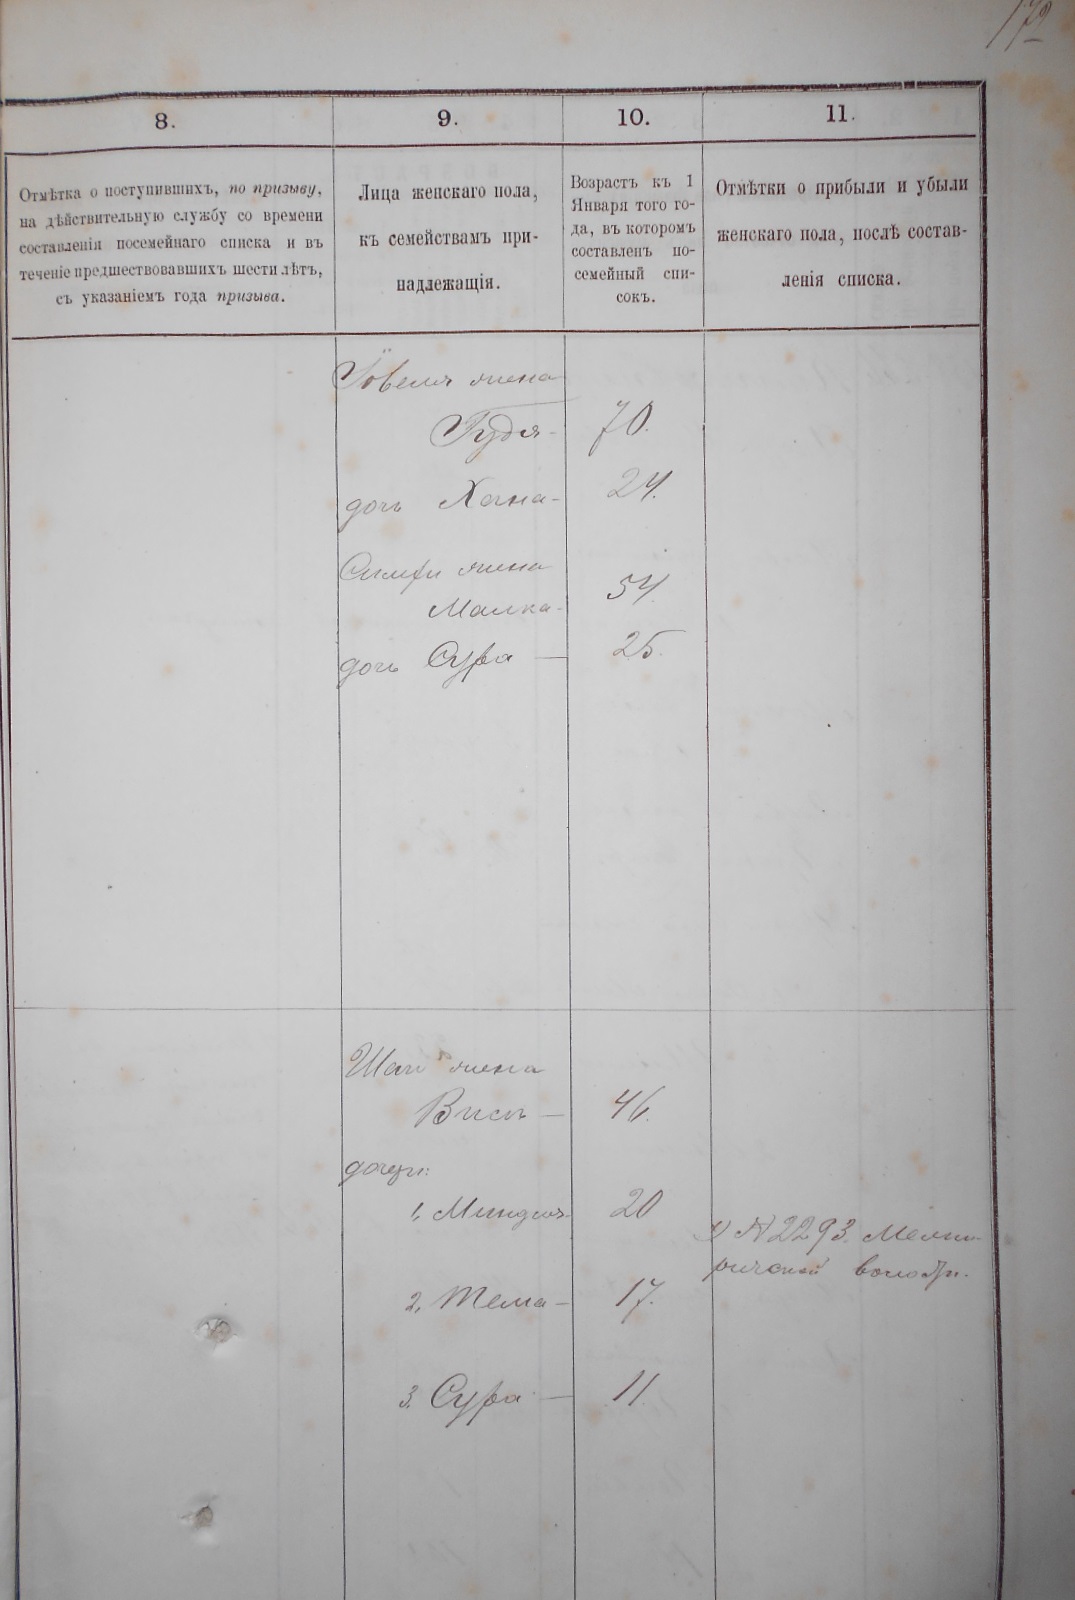 172
8.
9.
10.
11.
Отмѣтка о поступившихъ, по призыву,
на дѣйствительную службу со времени
составленія посемейнаго списка и въ
теченіе предшествовавшихъ шести лѣтъ,
съ указаніемъ года призыва.
Лица женскаго пола,
къ семействамъ при-
надлежащія.
Возрастъ къ 1
Января того го-
да, въ которомъ
составленъ по-
семейный спи-
сокъ.
Отмѣтки о прибыли и убыли
женскаго пола, послѣ состав-
ленія списка.
жена
Гудя - 70.
дочь Хана - 24.
жена
Малка - 54.
дочь Сура — 25.
Шаи жена
46.
дочери:
1, Миндля - 20
1) № 2293.
волости.
2, Тема - 17.
3. Сура — 11